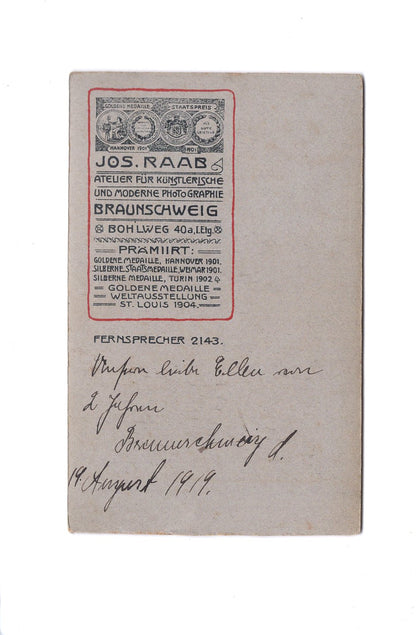 GOLDENE MEDAILLE STAATSPREIS
HANNOVER 1901
JOS. RAAB
ATELIER FÜR KÜNSTLERISCHE
UND MODERNE PHOTOGRAPHIE
BRAUNSCHWEIG
BOHLWEG 40a, I. Etg.
PRÄMIIRT:
GOLDENE MEDAILLE, HANNOVER 1901.
SILBERNE STAATSMEDAILLE, WEIMAR 1901.
SILBERNE MEDAILLE, TURIN 1902
GOLDENE MEDAILLE
WELTAUSSTELLUNG
ST. LOUIS 1904.
FERNSPRECHER 2143.
Unsere liebe Ellen von
2 Jahren
Braunschweig d.
19. August 1919.